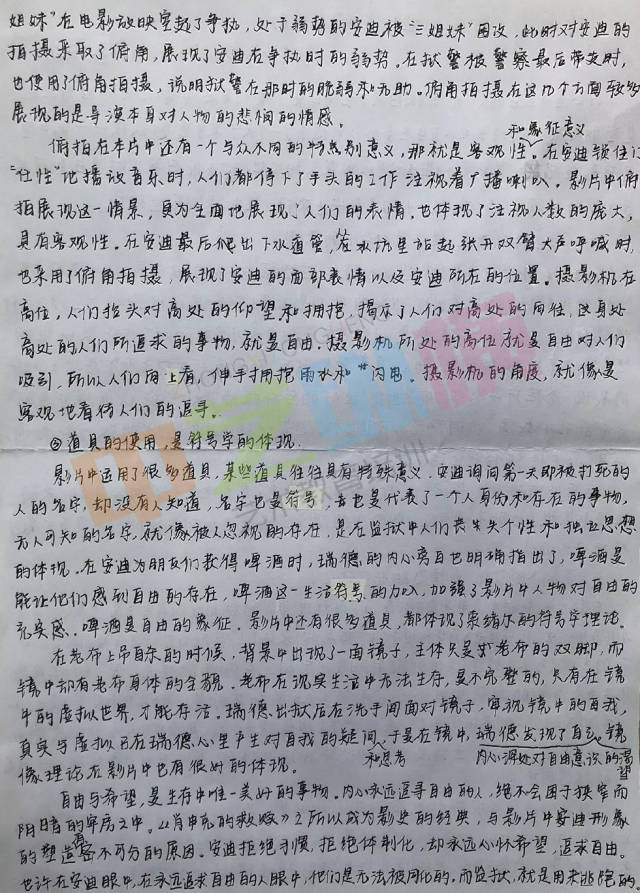 姐妹"在电影放映室起了争执，处于弱势的安迪被"三姐妹"围攻，此时对安迪的
拍摄采取了俯角，展现了安迪在争执时的弱势。在狱警被警察最后带走时，
也使用了俯角拍摄，说明狱警在那时的脆弱和无助。俯角拍摄在这几个方面较多
展现的是导演本身对人物的悲悯的情感。
和象征意义
俯拍在本片中还有一个与众不同的特别意义，那就是客观性。在安迪锁住门
"任性"地播放音乐时，人们都停下了手头的工作注视着广播喇叭。影片中俯
拍展现这一情景，更为全面地展现了人们的表情。也体现了注视人数的庞大，
具有客观性。在安迪最后爬出下水道管，在水坑里站起张开双臂大声呼喊时，
也采用了俯角拍摄，展现了安迪的面部表情以及安迪所在的位置。摄影机在
高位，人们抬头对高处的仰望和拥抱，揭示了人们对高处的向往，这身处
高处的人们所追求的事物，就是自由。摄影机所处的高位就是自由对人们
吸引，所以人们向上看，伸手拥抱雨水和闪电。摄影机的角度，就像是
客观地看待人们的追寻。
③道具的使用，是符号学的体现.
影片中运用了很多道具，某些道具往往具有特殊意义。安迪询问第一天即被打死的
人的名字，却没有人知道，名字也是符号，也是代表了一个人身份和存在的事物，
无人可知的名字，就像被人忽视的存在，是在监狱中人们丧失失个性和独立思想
的体现。在安迪为朋友们获得啤酒时，瑞德的内心旁白也明确指出了，啤酒是
能让他们感到自由的存在，啤酒这一生活符号的加入，加强了影片中人物对自由的
充实感。啤酒是自由的象征。影片中还有很多道具，都体现了索绪尔的符号学理论。
在老布上吊自杀的时候，背景中出现了一面镜子，主体只是老布的双脚，而
镜中却有老布身体的全貌。老布在现实生活中无法生存，是不完整的，只有在镜
中的虚拟世界，才能存活。瑞德出狱后在洗手间面对镜子，审视镜中的自我，
真实与虚拟已在瑞德心里产生对自我的疑问，于是在镜中，瑞德发现了自己，镜
和思考 内心深处对自由意识的渴望
像理论在影片中也有很好的体现。
自由与希望，是生存中唯一美好的事物。内心永远追寻自由的人，绝不会困于狭窄而
阴暗的牢房之中。《肖申克的救赎》之所以成为影史的经典，与影片中安迪形象
的塑造有密不可分的原因。安迪拒绝习惯，拒绝体制化，却永远心怀希望，追求自由。
也许在安迪眼中，在永远追求自由的人眼中，他们是无法被同化的。而监狱，就是用来逃脱的